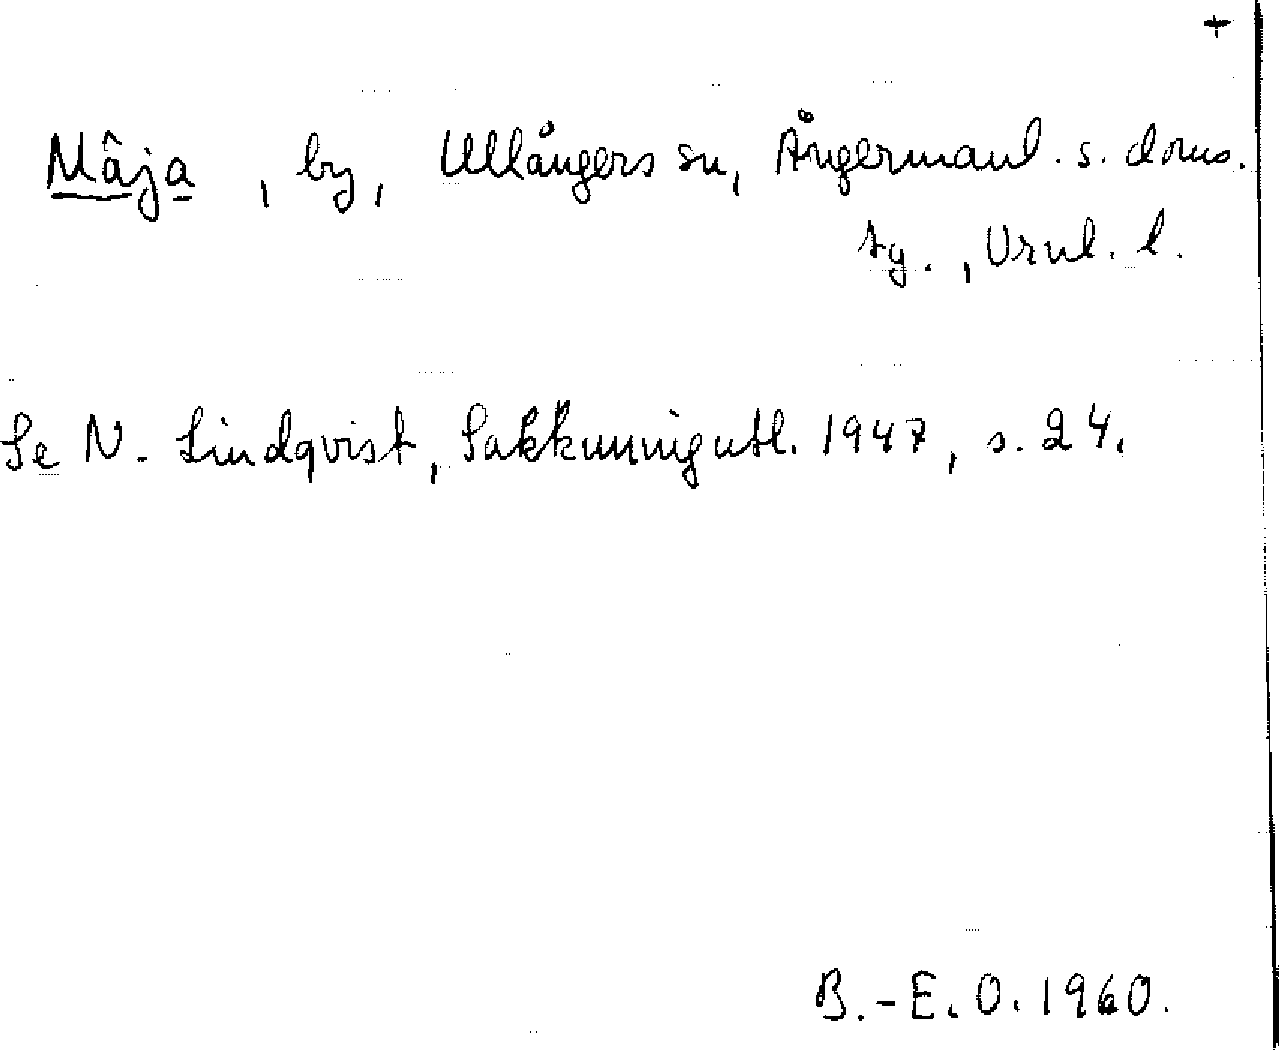 +
Mâja, by, Ullångers sn, Ångermanl. s. doms.
tg., Vrnl. l.
Se N. Lindqvist, Sakkunnigutl. 1947, s. 24.
B.-E. O. 1960.